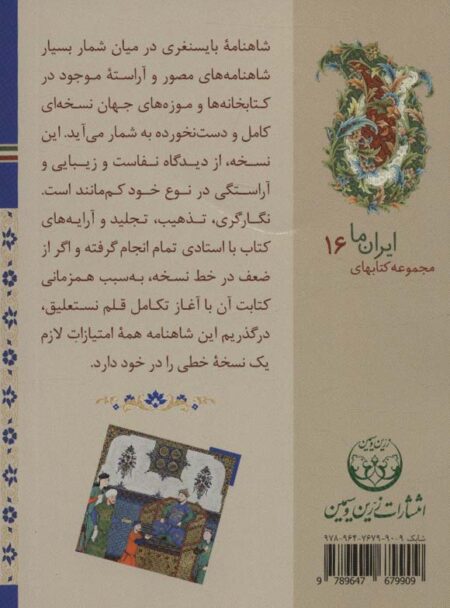 شاهنامهٔ بایسنغری در میان شمار بسیار
شاهنامه‌های مصور و آراستهٔ موجود در
کتابخانه‌ها و موزه‌های جهان نسخه‌ای
کامل و دست‌نخورده به شمار می‌آید. این
نسخه، از دیدگاه نفاست و زیبایی و
آراستگی در نوع خود کم‌مانند است.
نگارگری، تذهیب، تجلید و آرایه‌های
کتاب با استادی تمام انجام گرفته و اگر از
ضعف در خط نسخه، به‌سبب همزمانی
کتابت آن با آغاز تکامل قلم نستعلیق،
درگذریم این شاهنامه همهٔ امتیازات لازم
یک نسخهٔ خطی را در خود دارد.
ایران ما ۱۶
مجموعه کتابهای
زرین و سیمین
انتشارات زرّین و سیمین
شابک ۹-۹۰-۷۶۷۹-۹۶۴-۹۷۸
9 789647 679909